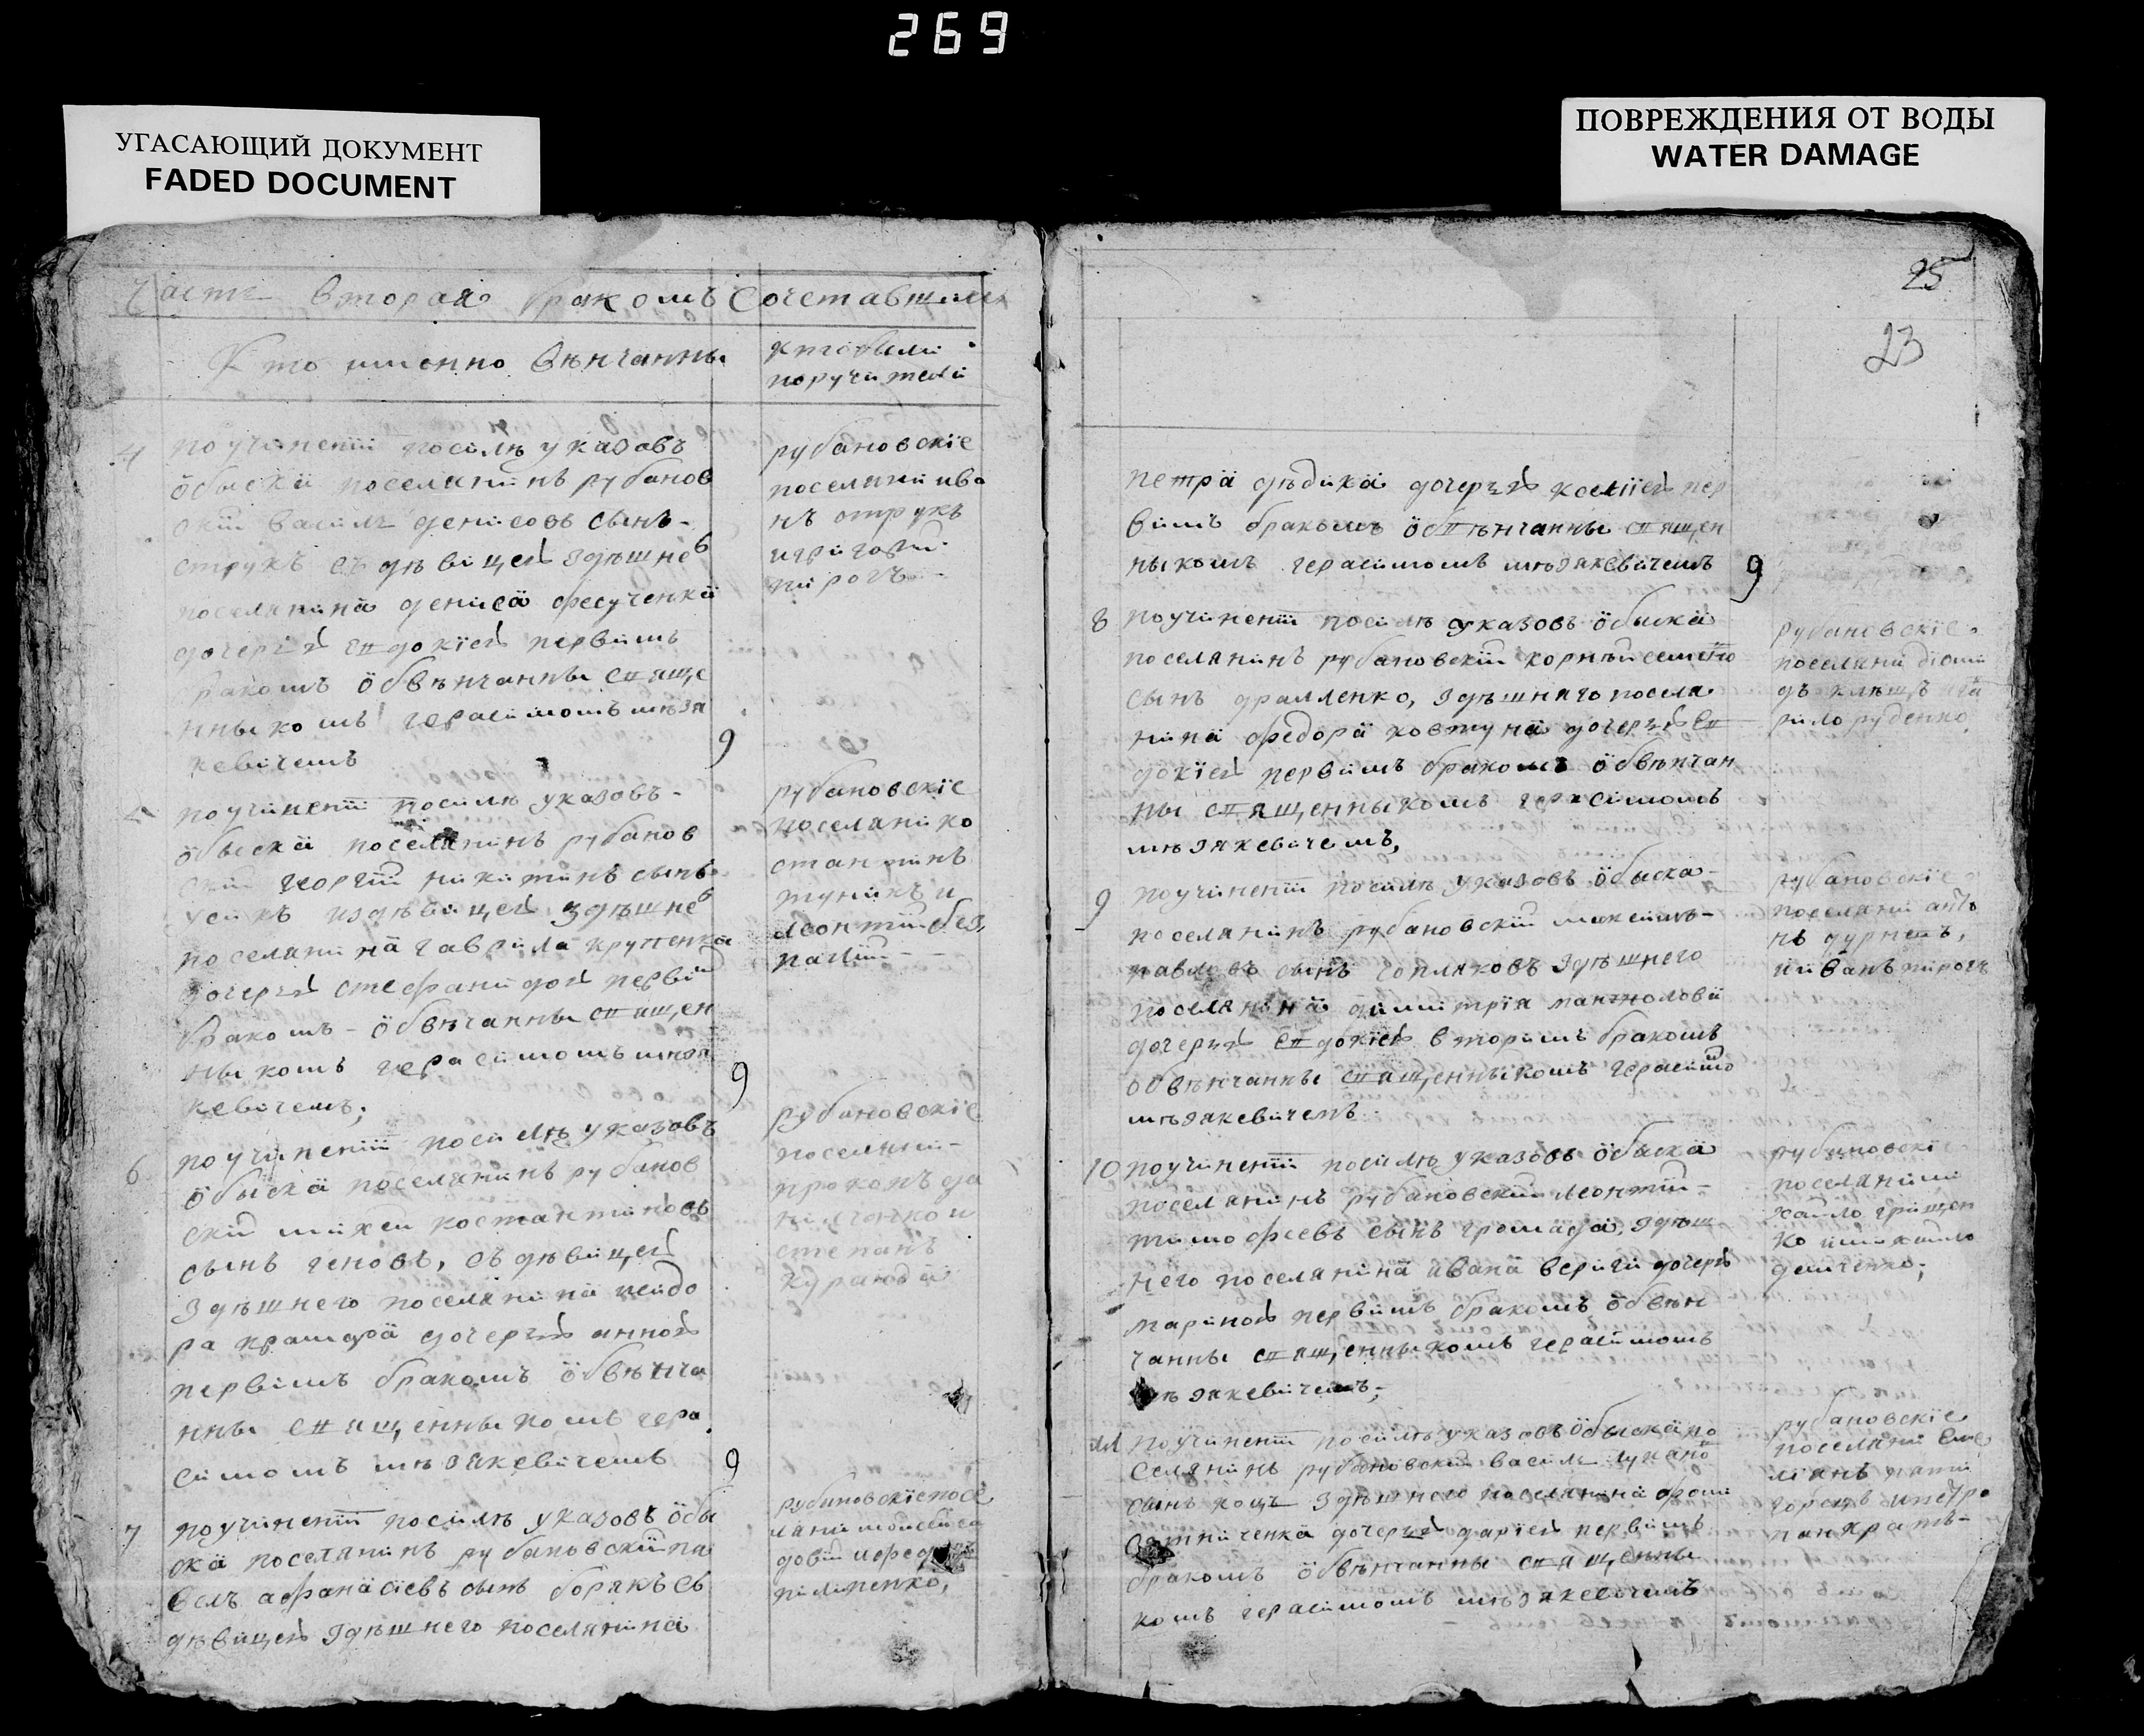 269
УГАСАЮЩИЙ ДОКУМЕНТ
FADED DOCUMENT
ПОВРЕЖДЕНИЯ ОТ ВОДЫ
WATER DAMAGE
Часть вторая бракомъ сочетавшихся
Кто именно вѣнчанны
кто были
поручители
4 поучинении посилѣ указовъ
обыска поселянинъ рубанов
ский василь денисовъ сынъ
струкъ съ дѣвицей здѣшнег
поселянина дениса фесученка
дочерей евдокией первимъ
бракомъ обвѣнчанны священ
ныкомъ герасимомъ мѣзя
кевичемъ
9
рубановские
поселяни ива
нъ отрукъ
пирогъ
поучинении посилѣ указовъ
обыска поселянинъ рубанов
ский георгий никитинъ сынъ
усикъ издѣвицей здѣшнег
поселянина гаврила крупенка
дочерей стефанидой первим
бракомъ обвѣнчанны священ
ныкомъ герасимомъ мѣзя
кевичемъ;
9
рубановские
поселяни ко
стантинъ
туникъ и
леонтий без
палий
6 поучинении посилѣ указовъ
обыска поселянинъ рубанов
ский михей костантиновъ
сынъ геновъ, съ дѣвицей
здѣшнего поселянина исидо
ра крамара дочерей анной
первимъ бракомъ обвѣнча
нны священныкомъ гера
симомъ мѣзякевичемъ
9
рубановские
поселяни
прокопъ да
ниленко и
степанъ
7 поучинении посилѣ указовъ обы
ска поселянинъ рубановский па
велъ афанасиевъ сынъ борякъ съ
дѣвицей здѣшнего поселянина
рубановские посе
ляни моисей са
довий и федор
пилипенко,
25
23
петра дѣдика дочерей ксенией пер
вимъ бракомъ обвѣнчанны священ
ныкомъ герасимомъ мѣзякевичемъ
9
8 поучинении посилѣ указовъ обыска
поселянинъ рубановский корнѣй семено
сынъ драпленко, здѣшняго поселя
нина федора ковтуна дочерей ев
докией первимъ бракомъ обвѣнчан
ны священныкомъ герасимомъ
мѣзякевичемъ,
рубановские
поселяни
руденко
9 поучинении посилѣ указовъ обыска
поселянинъ рубановский максимъ
павловъ сынъ гопляковъ здѣшнего
поселянина димитрия
дочерей евдокией вторимъ бракомъ
обвѣнчанны священныкомъ герасимо
мѣзякевичемъ
рубановские
поселяни анто
нъ дурневъ,
иванъ пирогъ
10 поучинении посилѣ указовъ обыска
поселянинъ рубановский леонтий
тимофеевъ сынъ громада, здѣш
него поселянина ивана вериги дочерей
мариной первимъ бракомъ обвѣн
чанны священныкомъ герасимомъ
мѣзякевичемъ;
рубановские
поселяни ми
хайло грищен
ко и михайло
демченко;
11 поучинении посилѣ указовъ обыска по
селянинъ рубановский василь лукано
сынъ коцъ здѣшнего поселянина фоми
дочерей дарией первимъ
бракомъ обвѣнчанны священны
комъ герасимомъ мѣзякевичемъ
рубановские
поселяни еме
лянъ
и петро
панкратъ